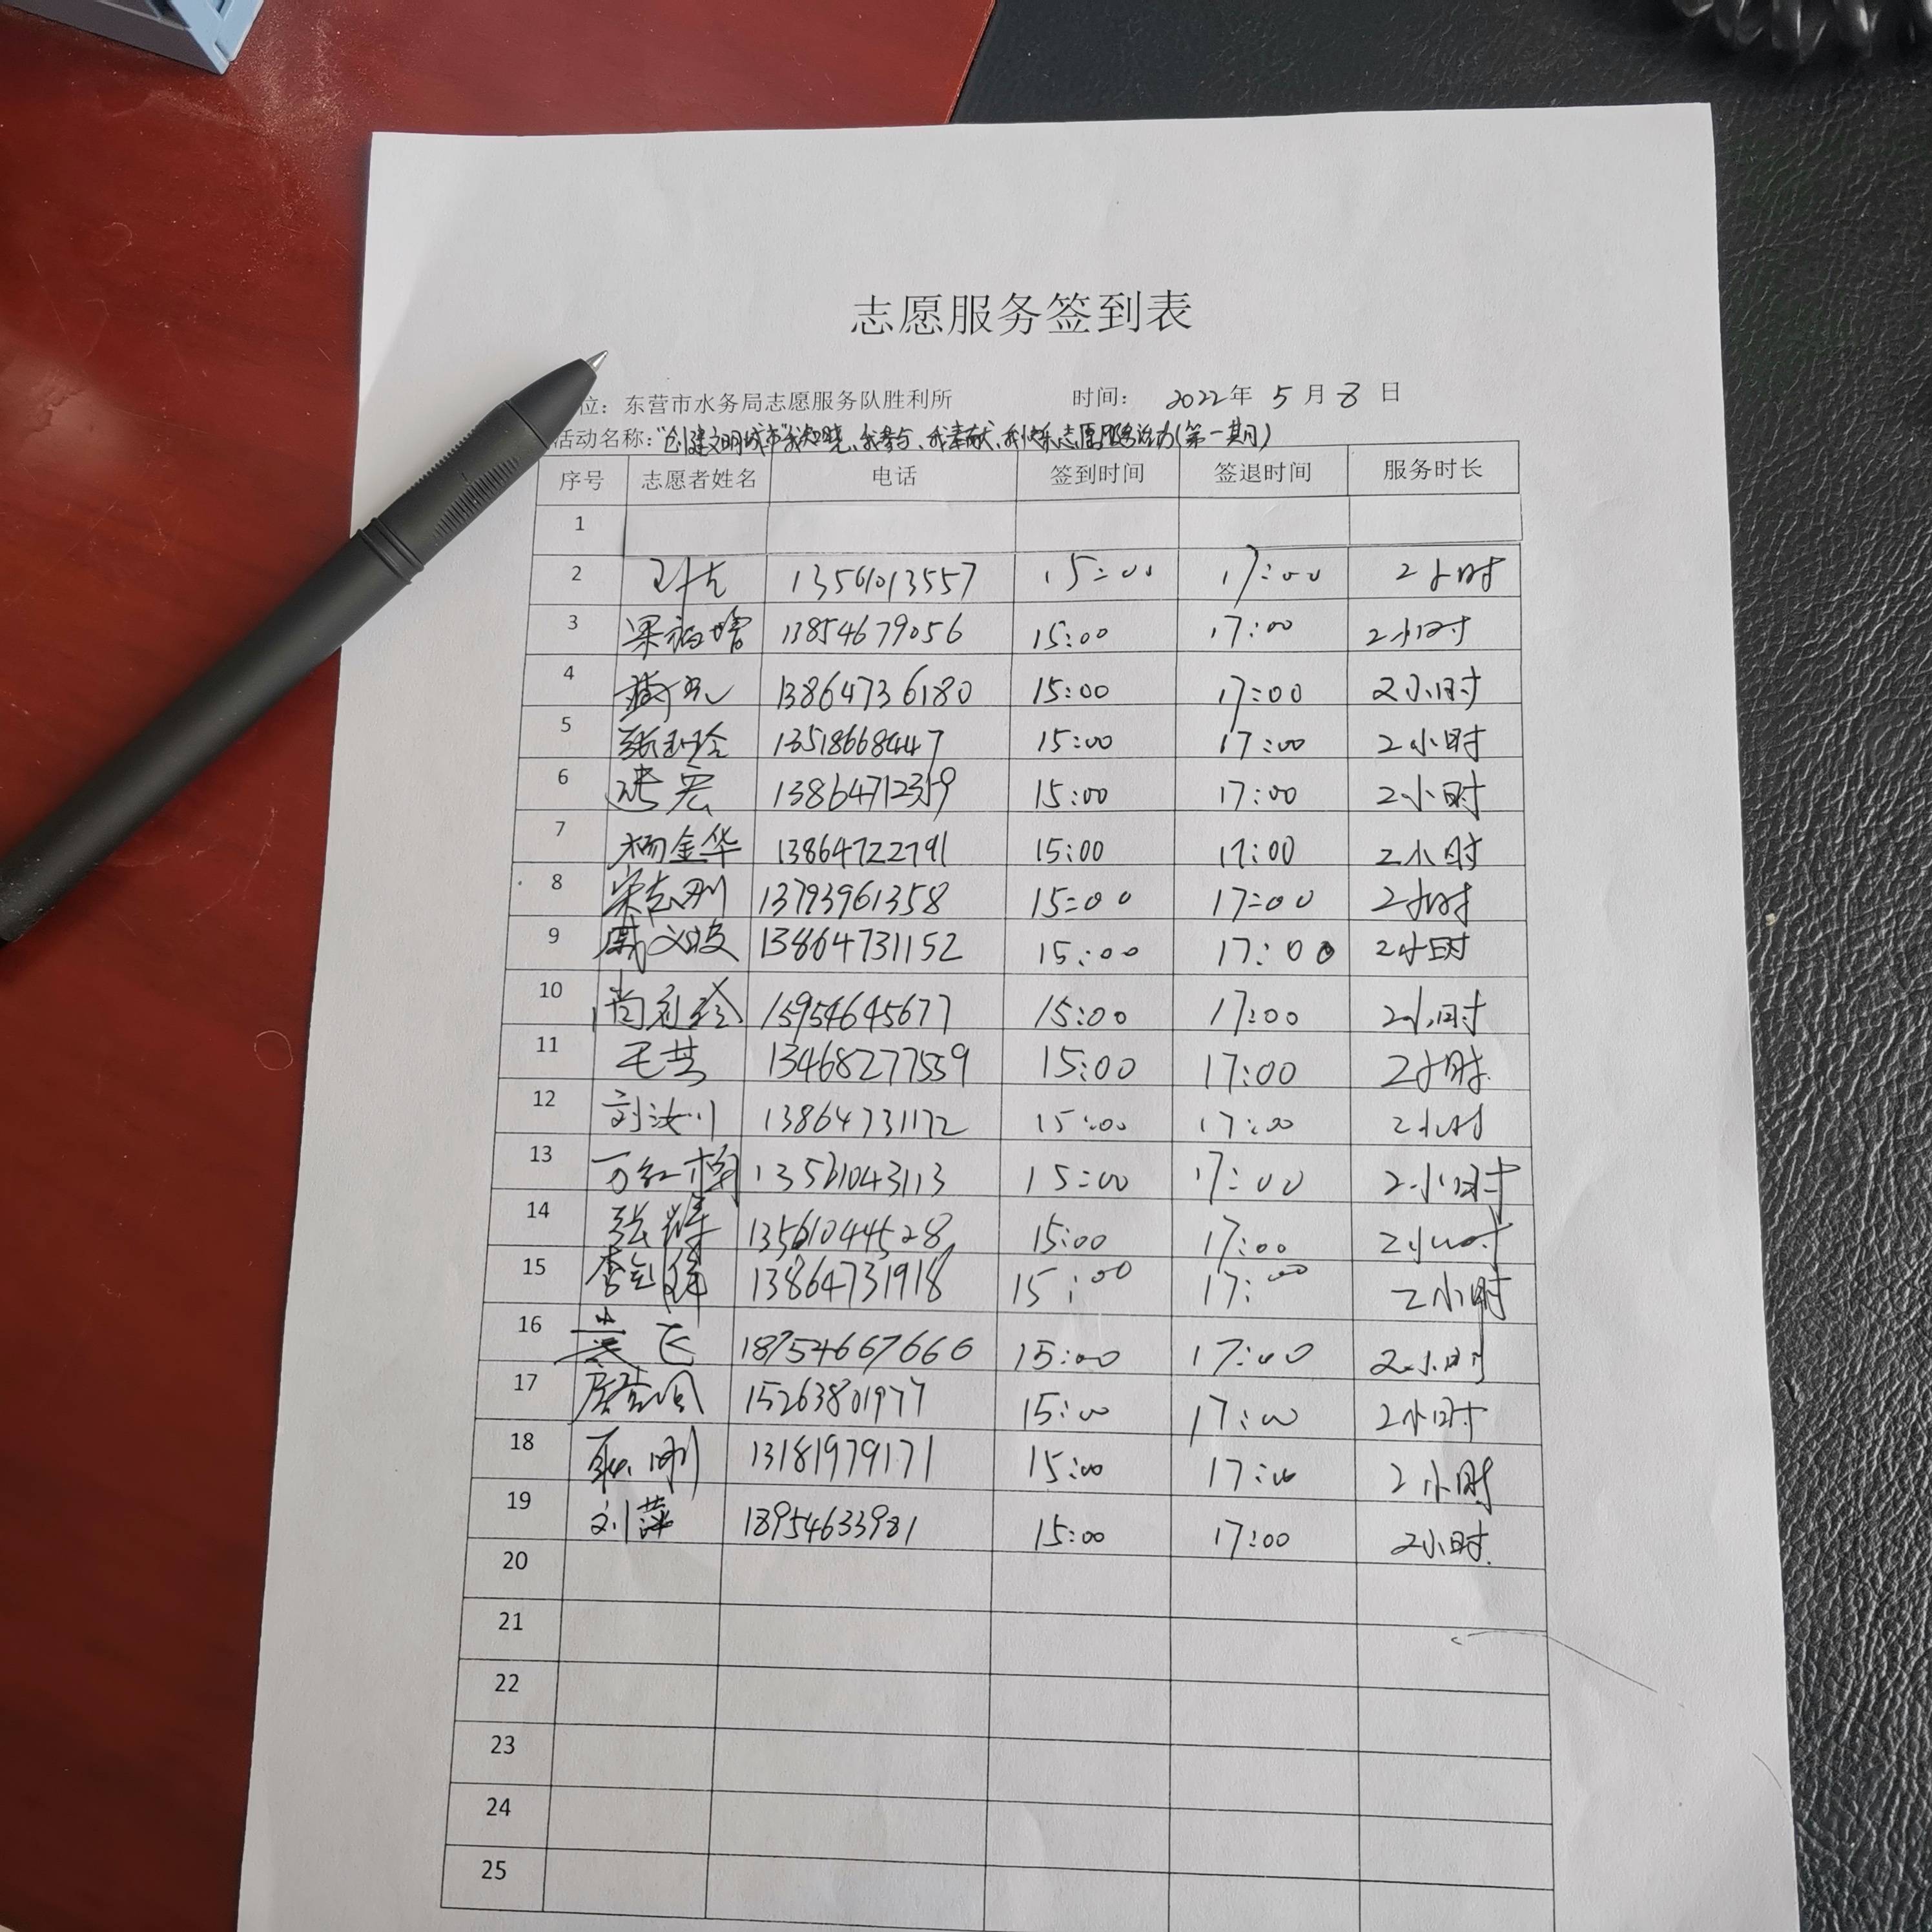 志愿服务签到表
位：东营市水务局志愿服务队胜利所 时间： 2022年 5 月 8 日
活动名称："创建文明城市"我知晓、我参与、我奉献、我快乐志愿服务活动(第一期)
序号 志愿者姓名 电话 签到时间 签退时间 服务时长
1
2 13561013557 15:00 17:00 2小时
3 13854679056 15:00 17:00 2小时
4 13864736180 15:00 17:00 2小时
5 13518668447 15:00 17:00 2小时
6 13864712359 15:00 17:00 2小时
7 杨金华 13864722791 15:00 17:00 2小时
8 宋志刚 13793961358 15:00 17:00 2小时
9 13864731152 15:00 17:00 2小时
10 15954645677 15:00 17:00 2小时
11 13468277559 15:00 17:00 2小时.
12 刘汝川 13864731172 15:00 17:00 2小时
13 13561043113 15:00 17:00 2小时
14 张辉 13561044528 15:00 17:00 2小时
15 13864731918 15:00 17:00 2小时
16 飞 18754667666 15:00 17:00 2小时
17 15263801977 15:00 17:00 2小时
18 13181979171 15:00 17:00 2小时
19 刘萍 18954633981 15:00 17:00 2小时.
20
21
22
23
24
25